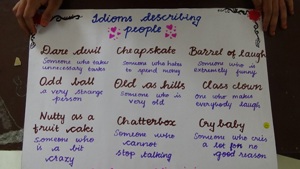 Idioms describing
people
Dare devil
Someone who takes
unnecessary tasks
Cheapskate
Someone who hates
to spend money
Barrel of laugh
Someone who is
extremely funny
Odd ball
a very strange
person
Old as hills
Someone who is
very old
Class clown
One who makes
everybody laugh
Nutty as a
fruit cake
Someone who
is a bit
crazy
Chatterbox
Someone who
cannot
stop talking
Cry baby
Someone who cries
a lot for no
good reason